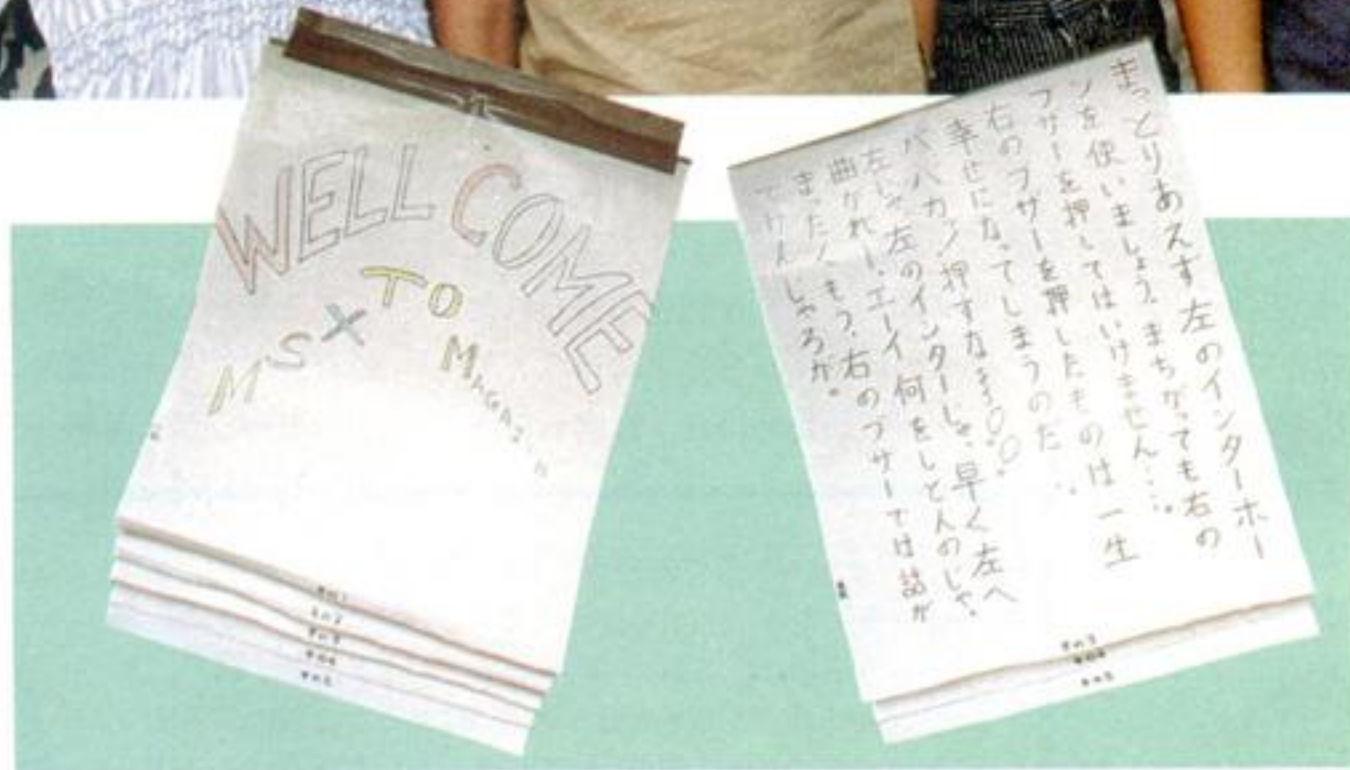 WELL COME
TO
MSX MAGAZIN
その1
その2
その3
その4
その5
まっとりあえず左のインターホー
ンを使いましょう。まちがっても右の
ブザーを押してはいけません……。
右のブザーを押したものは一生
幸せになってしまうのだ…。
バ、バカッ！押すなま〇〇。
左じゃ、左のインターじゃ、早く左へ
曲がれー、エーイ何をしとんのじゃ。
まったくもう、右のブザーでは話が
でけんじゃろが。
その3
その4
その5